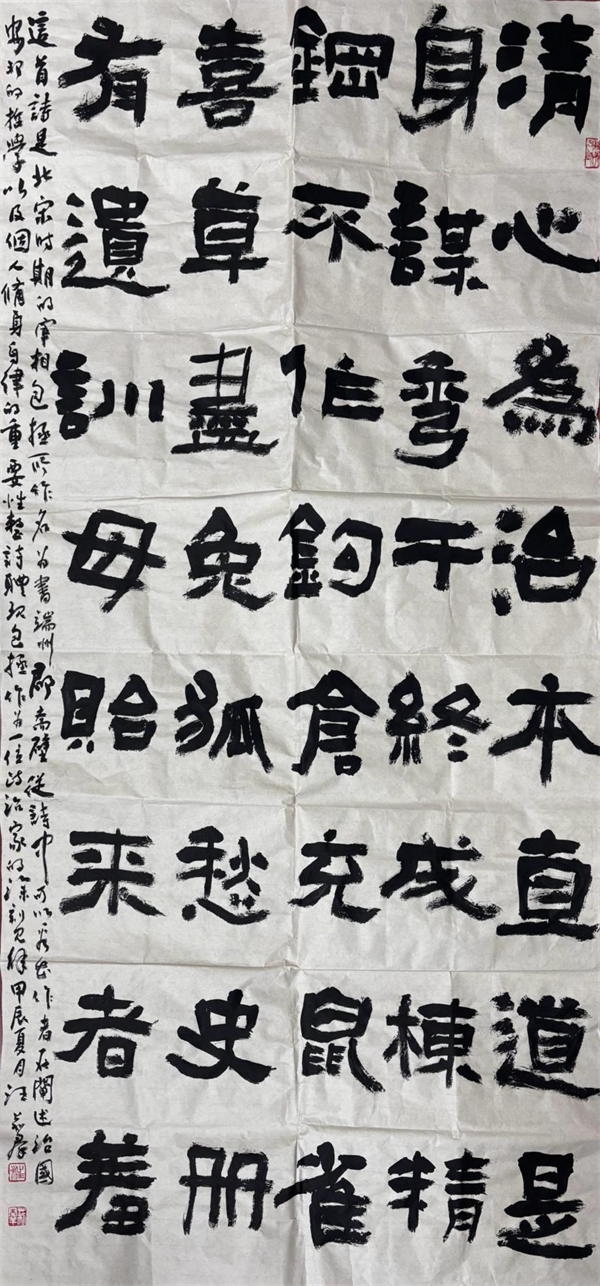 清心為治本直道是
身謀秀干終成棟精
鋼不作鈎倉充鼠雀
喜草盡兔狐愁史册
有遺訓毋貽来者羞
這首詩是北宋时期的宰相包拯所作名为書端州郡斋壁從詩中可以看出作者在闡述治國
安邦的哲學以及個人脩身自律的重要性整詩體现包拯作为一位政治家的深刻見解甲辰夏月汪